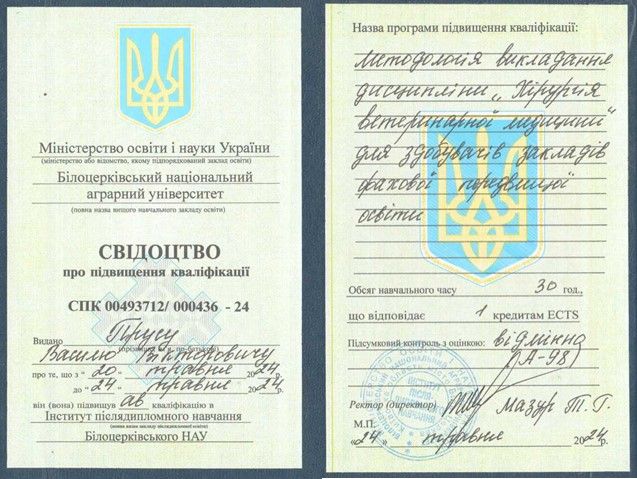 Міністерство освіти і науки України
(міністерство або відомство, якому підпорядкований заклад освіти)
Білоцерківський національний
аграрний університет
(повна назва вищого навчального закладу освіти)
СВІДОЦТВО
про підвищення кваліфікації
СПК 00493712/ 000436 - 24
Видано Прусу
Василю Вікторовичу
про те, що з "20" травня 2024р.
до "24" травня 2024р.
він (вона) підвищув ав кваліфікацію в
Інститут післядипломного навчання
(повна назва закладу післядипломної освіти)
Білоцерківського НАУ
Назва програми підвищення кваліфікації:
Методологія викладання
дисципліни „Хірургія
ветеринарної медицини"
для здобувачів закладів
фахової передвищої
освіти
Обсяг навчального часу 30 год.,
що відповідає 1 кредитам ECTS
Підсумковий контроль з оцінкою: відмінно
(А-98)
Ректор (директор) Мазур Т.Г.
М.П.
"24" травня 2024р.